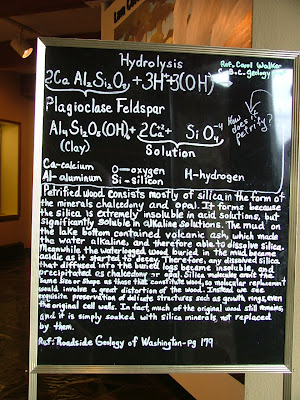 Hydrolysis
Ref: Carol Walker
S.B.C. geology
2Ca Al₂Si₂O₈ + 3H + 3(OH)
How does it petrify?
Plagioclase Feldspar
Al₄Si₂O₈(OH)₄ + 2Ca²⁺ + SiO₄⁻⁴
(Clay) Solution
Ca-calcium O-oxygen H-hydrogen
Al-aluminum Si-silicon
Petrified wood consists mostly of silica in the form of
the minerals chalcedony and opal. It forms because
the silica is extremely insoluble in acid solutions, but
significantly soluble in alkaline solutions. The mud on
the lake bottom contained volcanic ash which made
the water alkaline, and therefore able to dissolve silica.
Meanwhile the waterlogged wood buried in the mud became
acidic as it started to decay. Therefore, any dissolved silica
that diffused into the buried logs became insoluble, and
precipitated as chalcedony or opal. Silica molecules aren't the
same size or shape as those that constitute wood, so molecular replacement
would involve a great distortion of the wood. Instead we see
exquisite preservation of delicate structures such as growth rings, even
the original cell walls. In fact, much of the original wood still remains,
and it is simply soaked with silica minerals, not replaced
by them.
Ref: Roadside Geology of Washington - pg 179